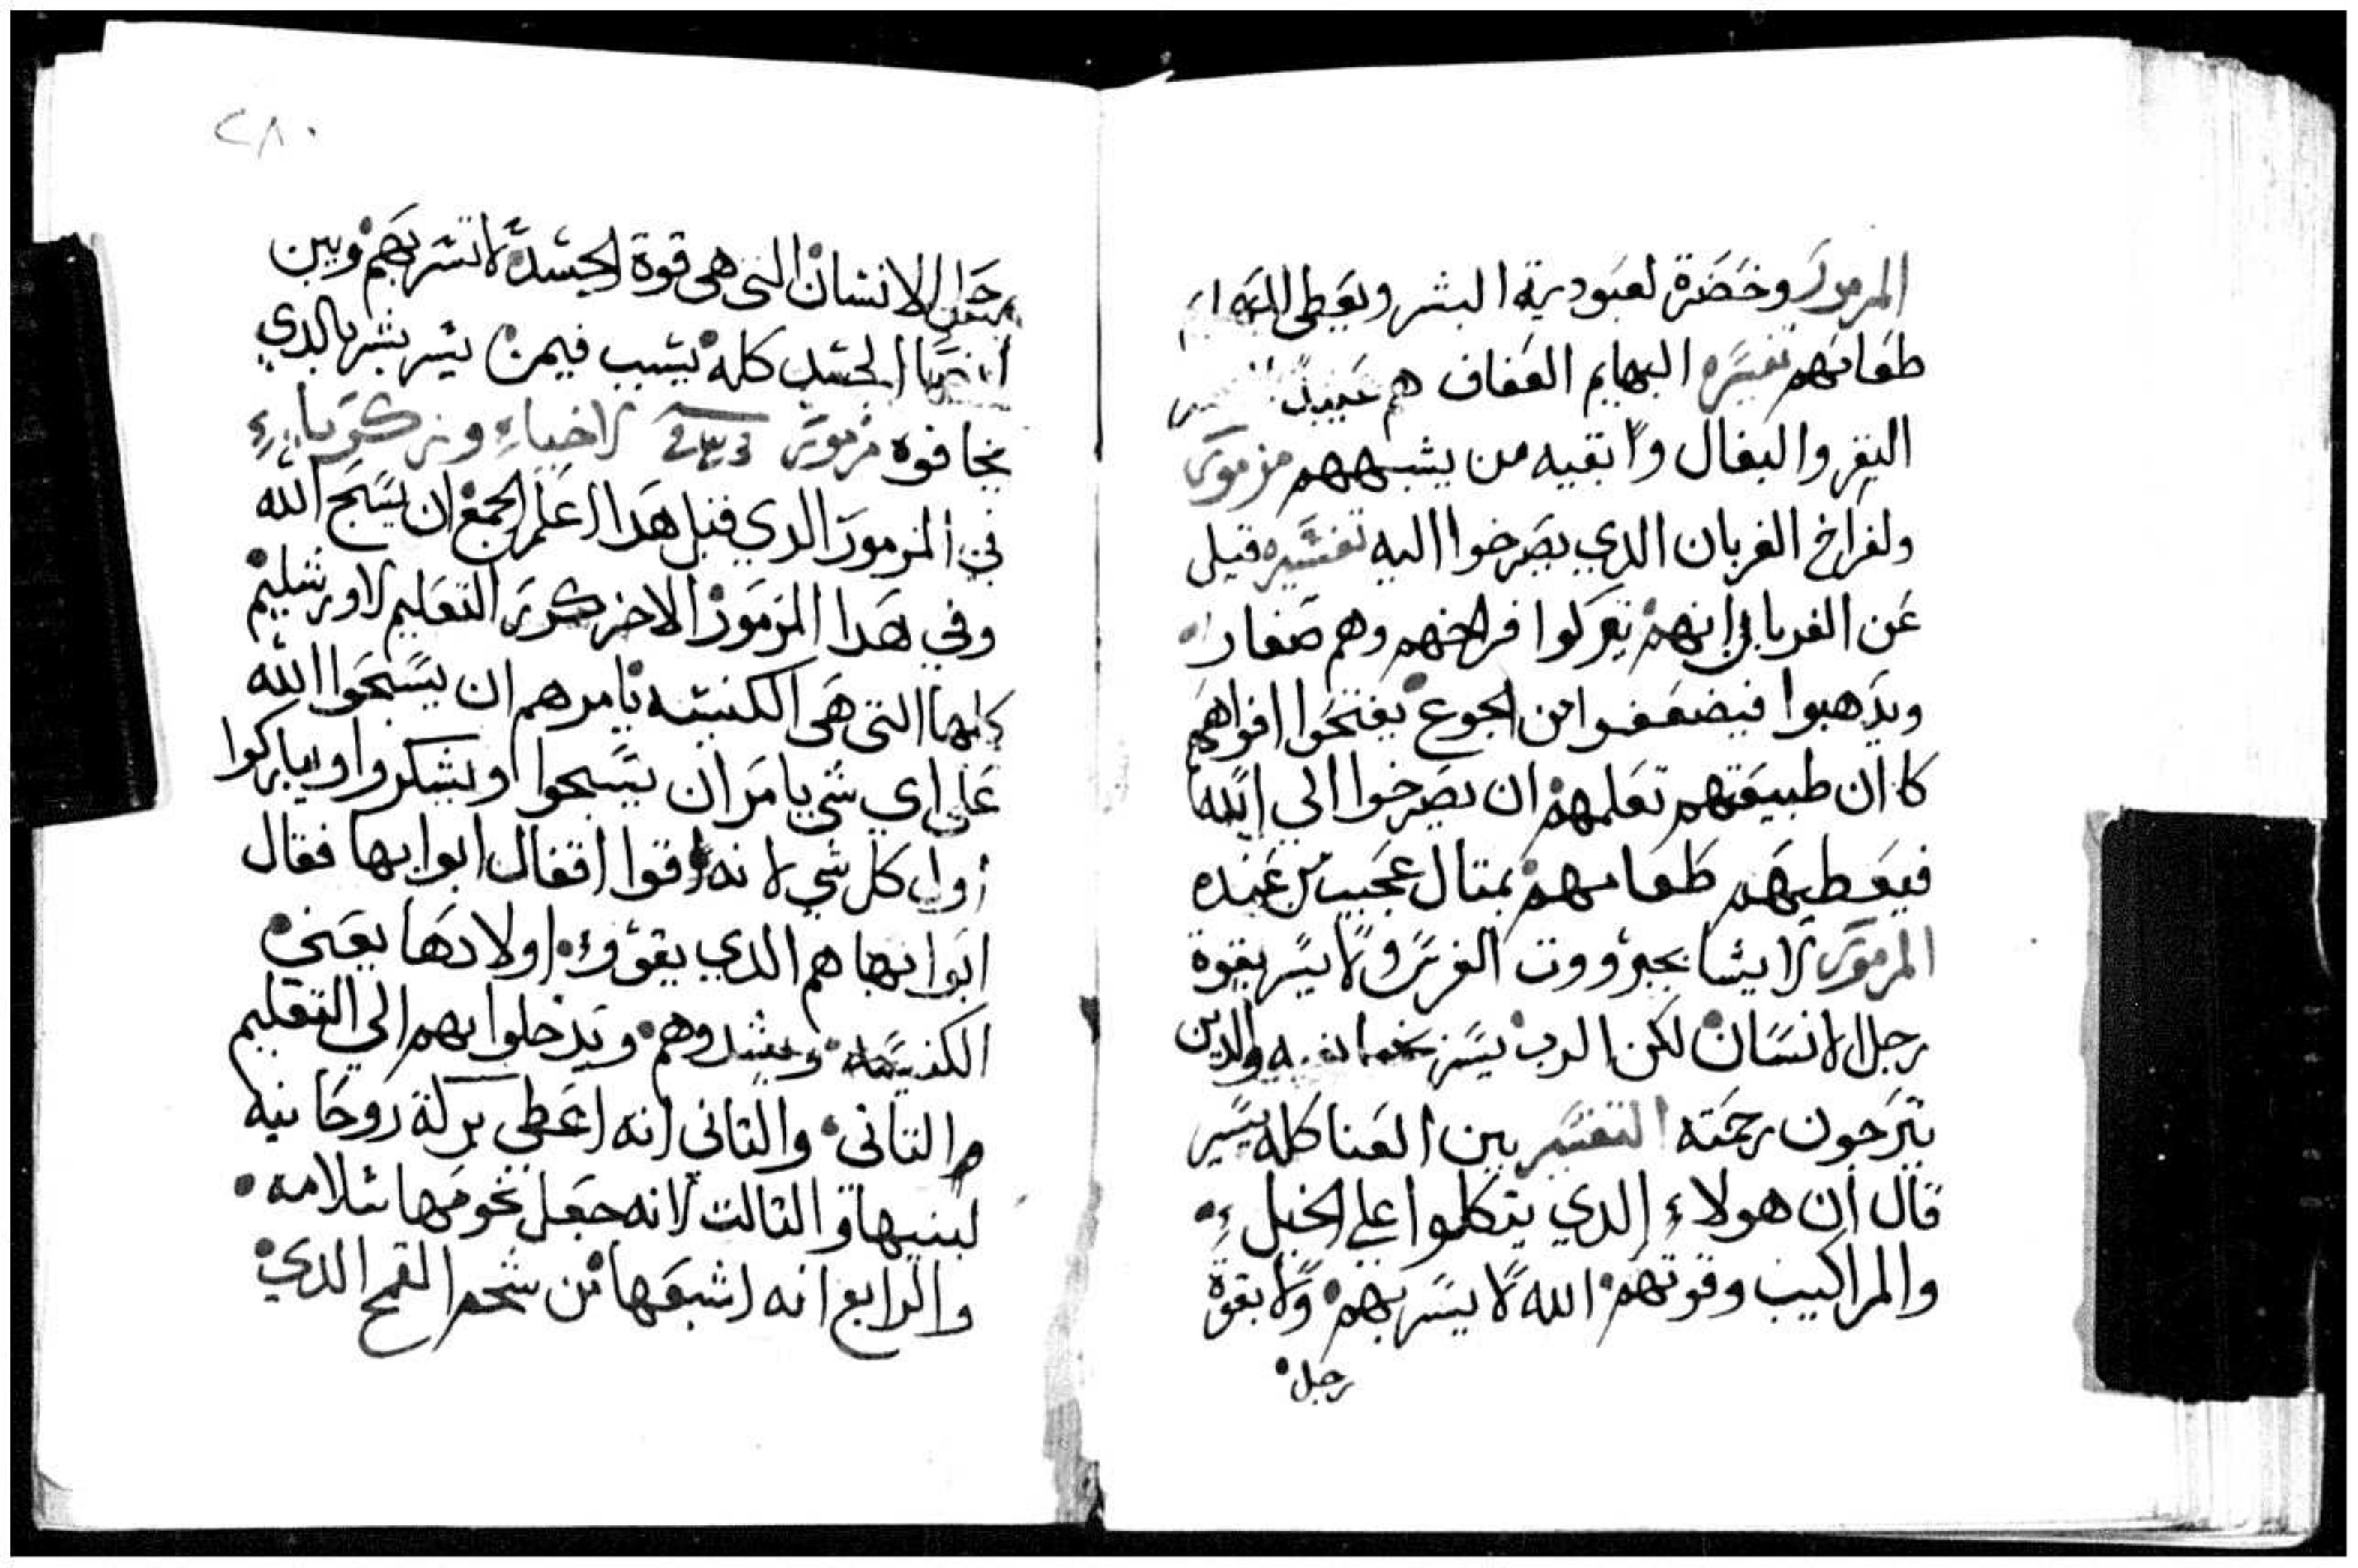 المزمور وخضرة لعبودية البشر ويعطى البهايم
طعامهم تفسيره البهايم العفاف هم عبيد
البقر والبغال وابقيه من يشبههم مزمور
ولفراخ الغربان الدي يصرخوا اليه تفسيره قيل
عن الغربان انهم يتركوا فراخهم وهم صغار
ويدهبوا فيضعفوا من الجوع يفتحوا افواههم
كان طبيعتهم تعلمهم ان يصرخوا الي الله
فيعطيهم طعامهم بمتال عجيب من عنده
المزمور لا يشا بجبرووت الفرس ولا يسر بقوة
رجل الانسان لكن الرب يسر بخايفيه والدين
يترجون رحمته التفسير بين العنا كله يسير
قال ان هولاء الدي يتكلموا علي الخيل
والمراكيب وقوتهم الله لا يسر بهم ولا بقوة
رجل
٢٨٠
رجل الانسان التي هي قوة الجسد لا تسر بهم وبين
الجسد كله يسبب فيمن يسر يسر بالدي
يخافوه مزمور لاخياء وزكرياء
في المزمور الدي قبل هدا اعلم الجمع ان يسبح الله
وفي هدا المزمور الاخر كرر التعليم لاورشليم
كلها التي هي الكنيسه يامرهم ان يسبحوا الله
علي اي شي يامر ان يسبحوا ويشكروا ويباركوا
اول كل شي لانه قوا اقفال ابوابها فقال
ابوابها هم الدي يقووء اولادها يعني
الكنيسه ويشدوهم ويدخلوا بهم الي التعليم
التاني والتاني انه اعطي بركة روحانيه
لبنيها والتالت لانه جعل تخومها سلامه
والرابع انه اشبعها من شحم القمح الدي